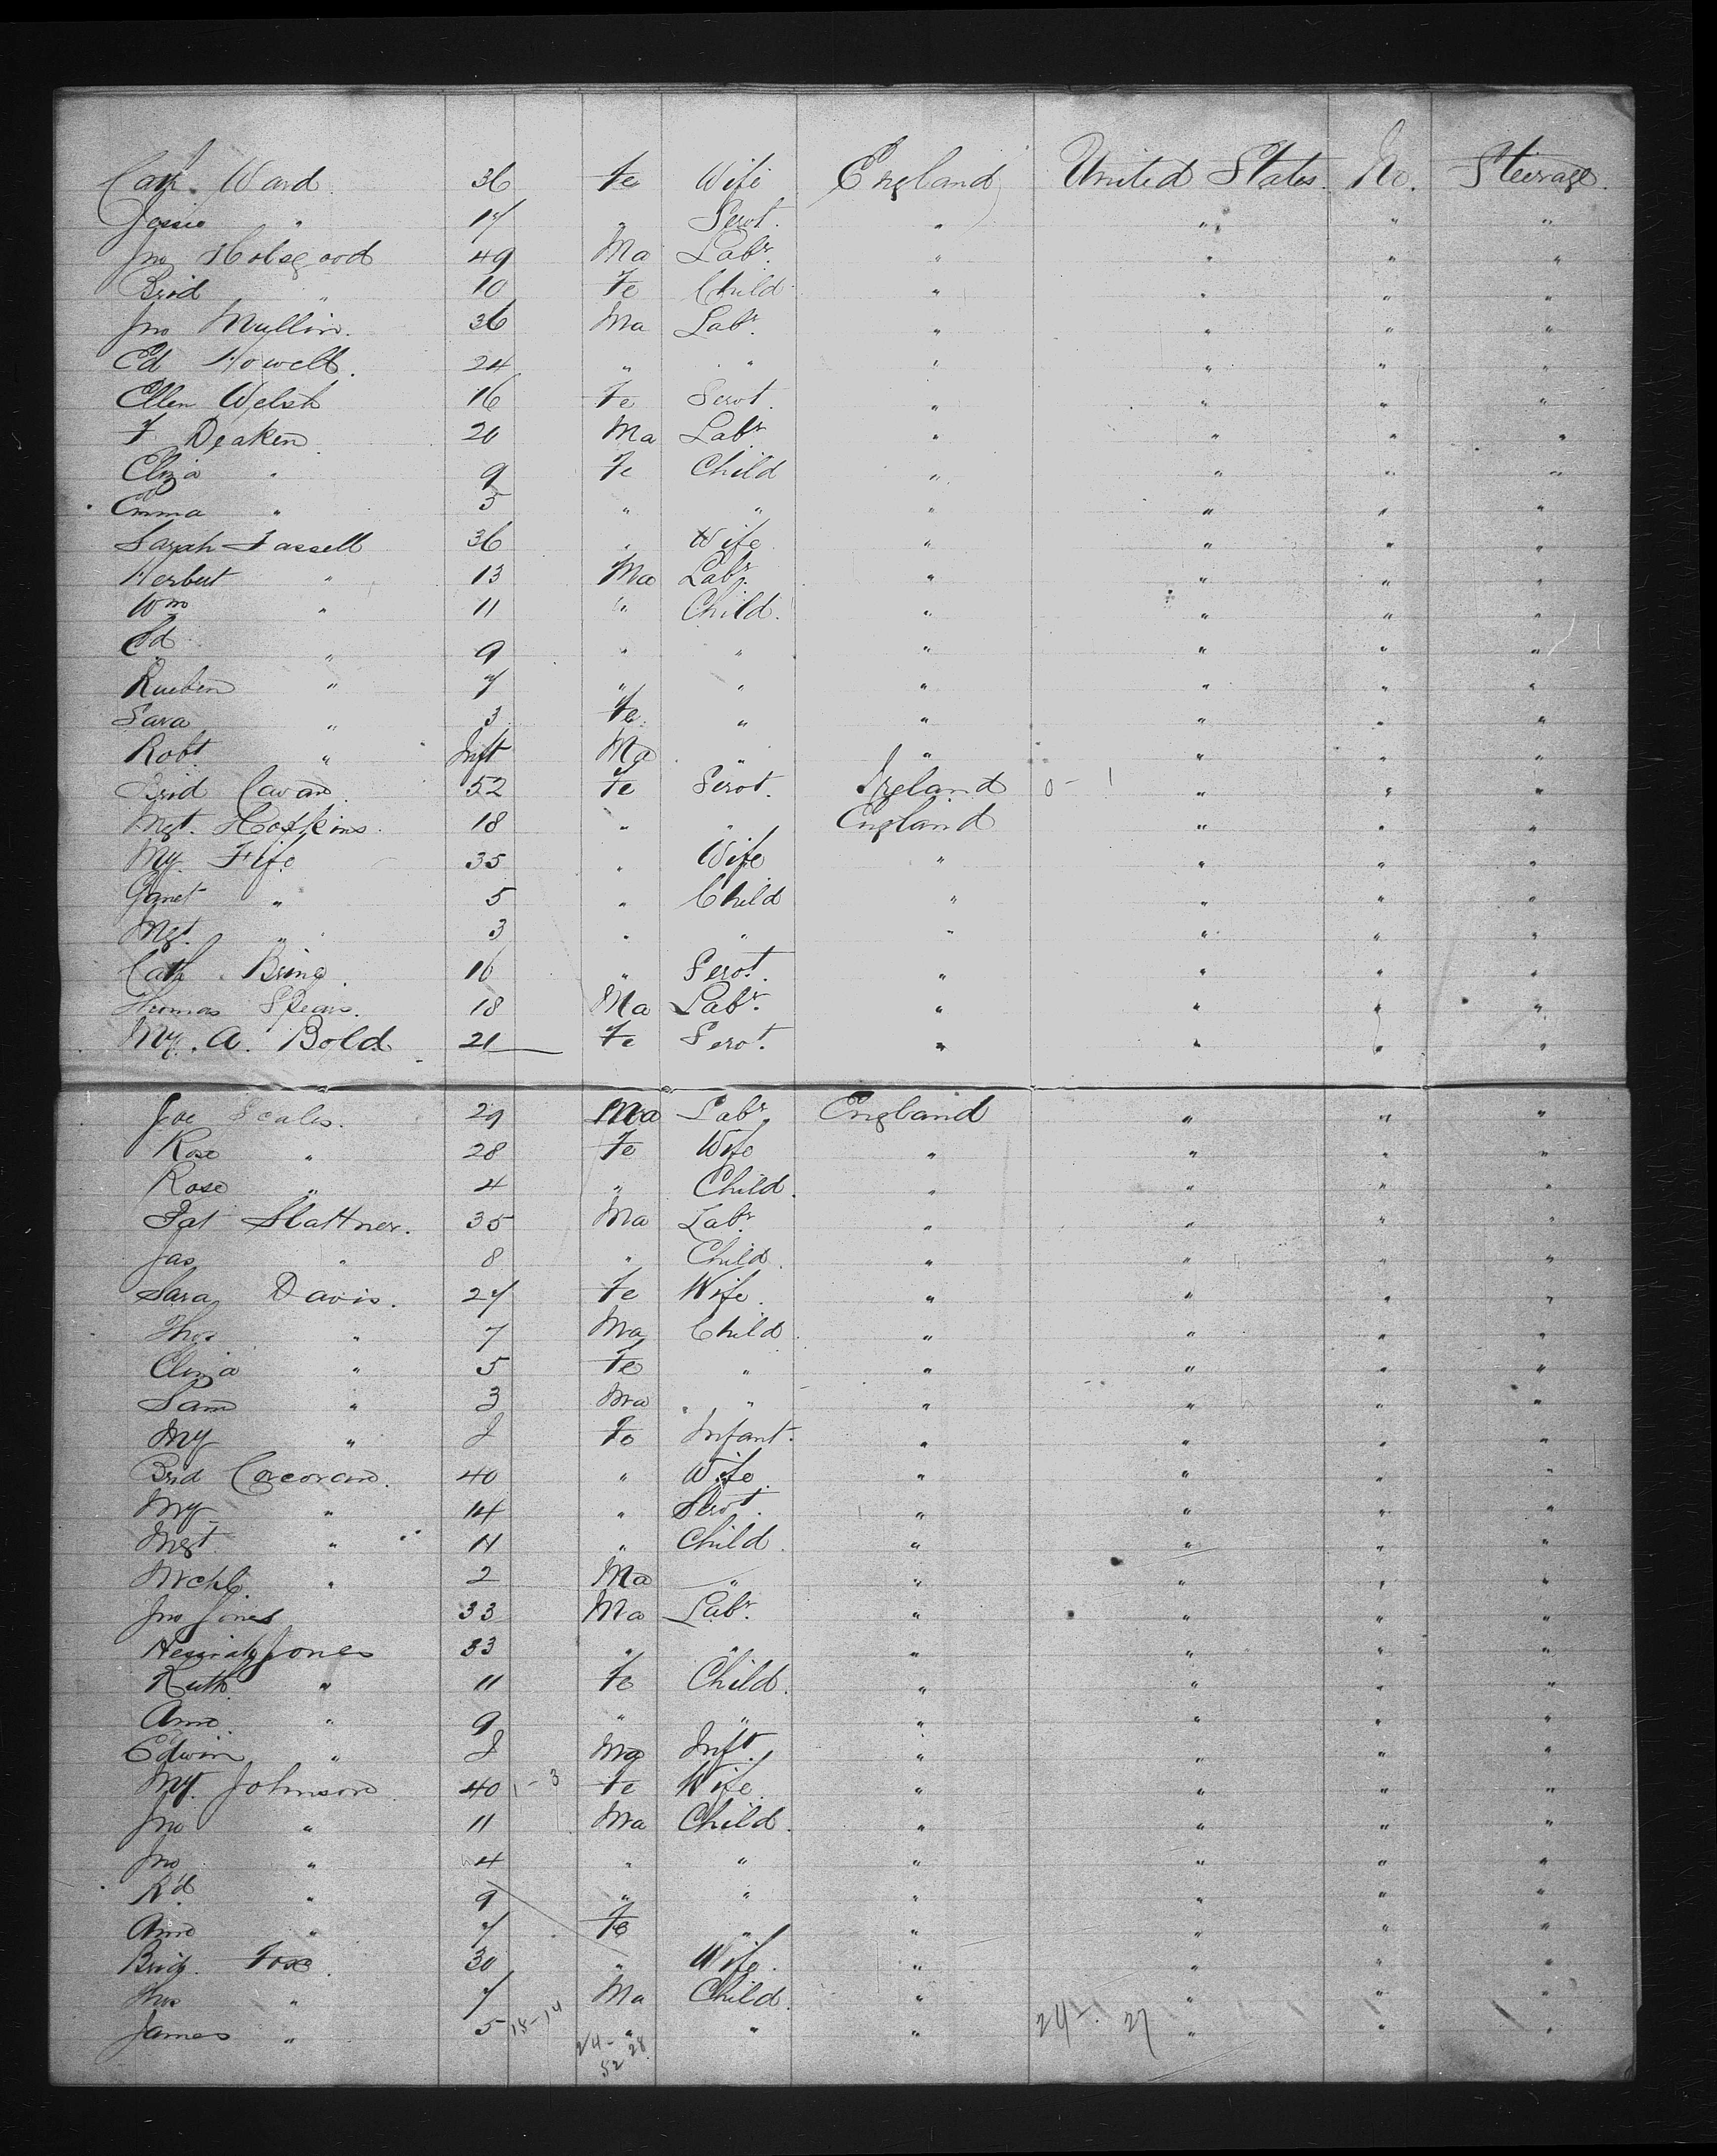 Cath. Ward 36 Fe Wife England United States. No. Steerage.
Jessie " 17 " Servt. " " " "
Jno Hobsgood 49 Ma Labr. " " " "
Brid " 10 Fe Child " " " "
Jno Mullin. 36 Ma Labr. " " " "
Ed Howell. 24 " " " " " "
Ellen Welsh 16 Fe Servt. " " " "
F. Deaken 20 Ma Labr. " " " "
Eliza " 9 Fe Child " " " "
Emma " 5 " " " " " "
Sarah Fassell 36 " Wife " " " "
Herbert " 13 Ma Labr. " " " "
Wm " 11 " Child. " " " "
Ed. " 9 " " " " " "
Rueben " 7 " " " " " "
Sara " 3 Fe. " " " " "
Robt. " Inft Ma " " " " "
Brid Cavan. 52 Fe Servt. Ireland 0 - 1 " " "
Mgt. Hopkins. 18 " " England " " "
My. Fife 35 " Wife " " " "
Ganet " 5 " Child " " " "
Mgt. " 3 " " " " " "
Cath. Bring. 16 " Servt. " " " "
Thomas Spears. 18 Ma Labr. " " " "
My. A. Bold 21 Fe Servt. " " " "
Joe Scales. 29 Ma Labr. England " " "
Rose " 28 Fe Wife " " " "
Rose " 4 " Child. " " " "
Pat Slattner. 35 Ma Labr. " " " "
Jas " 8 " Child. " " " "
Sara Davis. 27 Fe Wife. " " " "
Thos " 7 Ma Child " " " "
Eliza " 5 Fe " " " " "
Sam " 3 Ma " " " " "
My " Fe Infant. " " " "
Brid Corcoran. 40 " Wife. " " " "
My " 14 " Servt. " " " "
Mgt. " 11 " Child. " " " "
Mchl. " 2 Ma " " " " "
Jno Jones 33 Ma Labr. " " " "
Jones 33 " " " " " "
Ruth " 11 Fe Child. " " " "
Ann. " 9 " " " " " "
Edwin " Ma Inft. " " " "
My. Johnson 40 1 - 3 Fe Wife. " " " "
Jno " 11 Ma Child. " " " "
Jno " 4 " " " " " "
Rd. " 9 " " " " " "
Ann " 7 Fe " " " " "
Brid. Fox. 30 " Wife. " " " "
Thos " 7 Ma Child. " " " "
James " 5 18-14 " " " 24 - 27 " " "
24 - 28
52